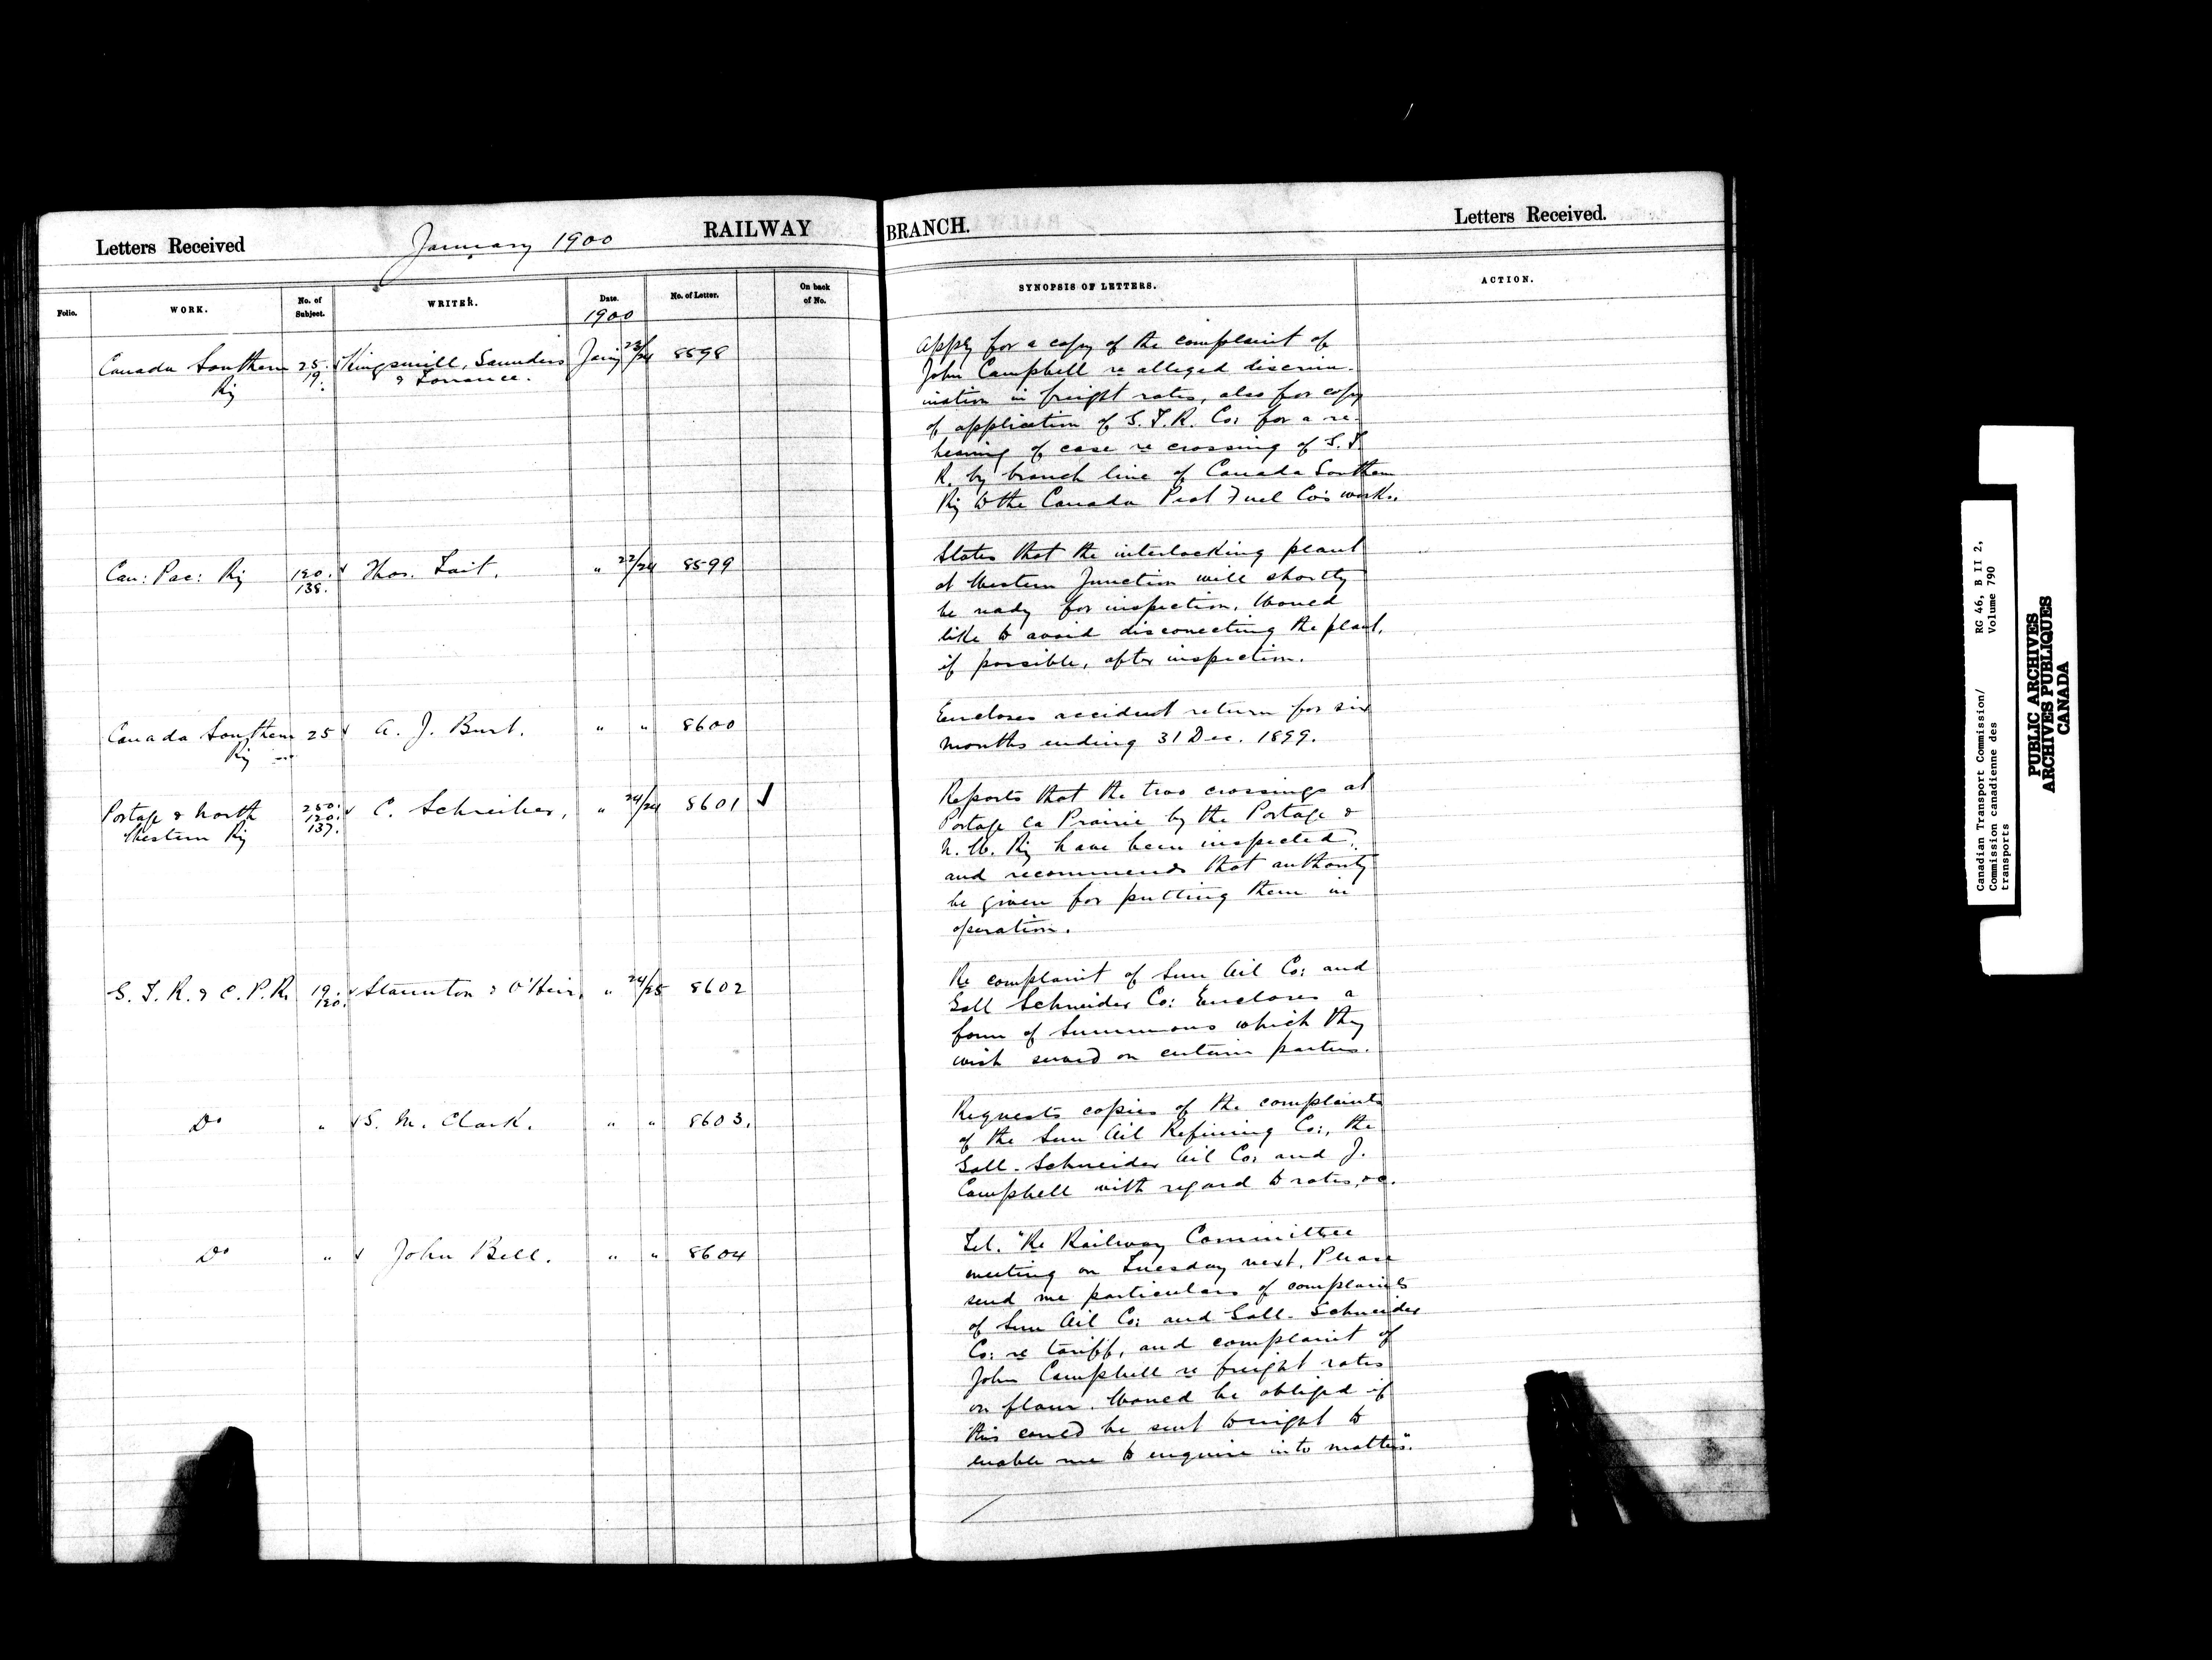 Letters Received
January 1900
RAILWAY BRANCH.
Letters Received.
Folio.
WORK.
No. of Subject.
WRITER.
Date. 1900
No. of Letter.
On back of No.
SYNOPSIS OF LETTERS.
ACTION.
Canada Southern 25. Kingsmill, Saunders Jany 23/24 8598
Ry 19. & Torrance.
Apply for a copy of the complaint of
John Campbell re alleged discrim-
ination in freight rates, also for copy
of application of G.T.R. Co: for a re-
hearing of case re crossing of G.T.
R. by branch line of Canada Southern
Ry to the Canada Peat Fuel Co's works.
Can: Pac: Ry 120. Thos. Tait. " 22/24 8599
138.
States that the interlocking plant
at Western Junction will shortly
be ready for inspection. Would
like to avoid disconecting the plant,
if possible, after inspection.
Canada Southern 25 A. J. Burt. " " 8600
Ry
Encloses accident return for six
months ending 31 Dec. 1899.
Portage & North 250. C. Schreiber, " 24/24 8601 ✓
Western Ry 120.
137.
Reports that the two crossings at
Portage la Prairie by the Portage &
N.W. Ry have been inspected,
and recommends that authority
be given for putting them in
operation.
G.T.R. & C.P.R. 19. Staunton & O'Heir, " 24/25 8602
120.
Re complaint of Sun Oil Co: and
Gall Schneider Co: Encloses a
form of Summons which they
wish served on certain parties.
Do " S. M. Clark. " " 8603.
Requests copies of the complaints
of the Sun Oil Refining Co:, the
Gall-Schneider Oil Co: and J.
Campbell with regard to rates, &c.
Do " John Bell. " " 8604
Tel. "Re Railway Committee
meeting on Tuesday next. Please
send me particulars of complaints
of Sun Oil Co: and Gall-Schneider
Co: re tariff, and complaint of
John Campbell re freight rates
on flour. Would be obliged if
this could be sent tonight to
enable me to enquire into matters".
Canadian Transport Commission/
Commission canadienne des
transports
RG 46, B II 2,
Volume 790
PUBLIC ARCHIVES
ARCHIVES PUBLIQUES
CANADA